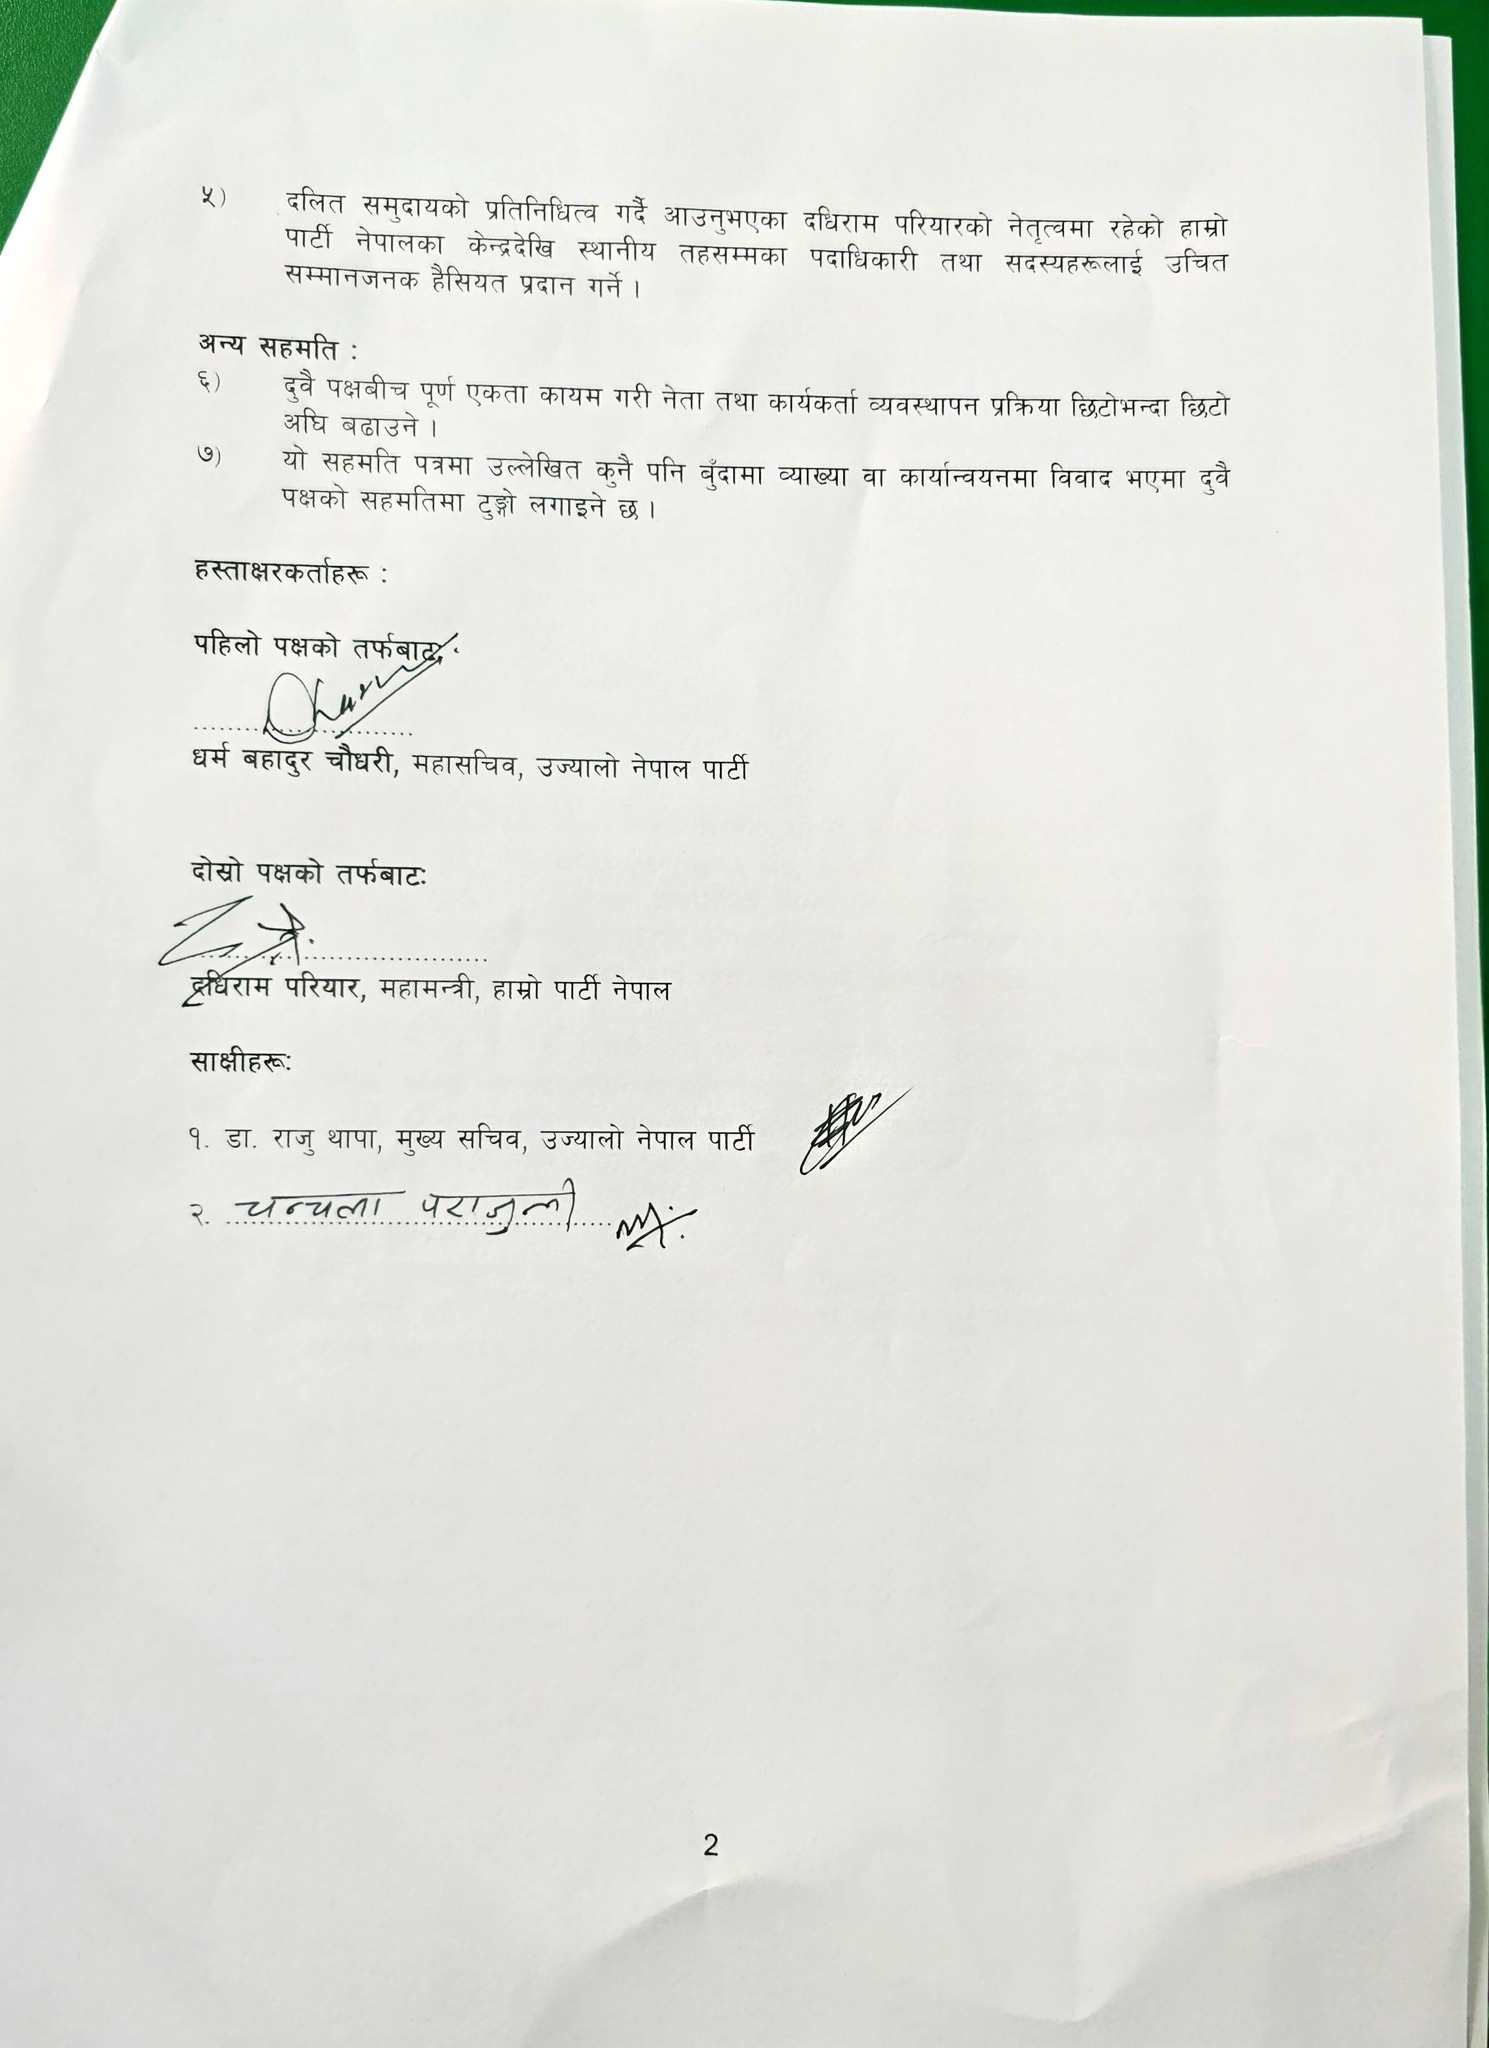 ५) दलित समुदायको प्रतिनिधित्व गर्दै आउनुभएका दधिराम परियारको नेतृत्वमा रहेको हाम्रो
पार्टी नेपालका केन्द्रदेखि स्थानीय तहसम्मका पदाधिकारी तथा सदस्यहरूलाई उचित
सम्मानजनक हैसियत प्रदान गर्ने ।
अन्य सहमति :
६) दुवै पक्षबीच पूर्ण एकता कायम गरी नेता तथा कार्यकर्ता व्यवस्थापन प्रक्रिया छिटोभन्दा छिटो
अघि बढाउने ।
७) यो सहमति पत्रमा उल्लेखित कुनै पनि बुँदामा व्याख्या वा कार्यान्वयनमा विवाद भएमा दुवै
पक्षको सहमतिमा टुङ्गो लगाइने छ ।
हस्ताक्षरकर्ताहरू :
पहिलो पक्षको तर्फबाट:
धर्म बहादुर चौधरी, महासचिव, उज्यालो नेपाल पार्टी
दोस्रो पक्षको तर्फबाट:
दधिराम परियार, महामन्त्री, हाम्रो पार्टी नेपाल
साक्षीहरू:
१. डा. राजु थापा, मुख्य सचिव, उज्यालो नेपाल पार्टी
२. चन्चला पराजुली
2